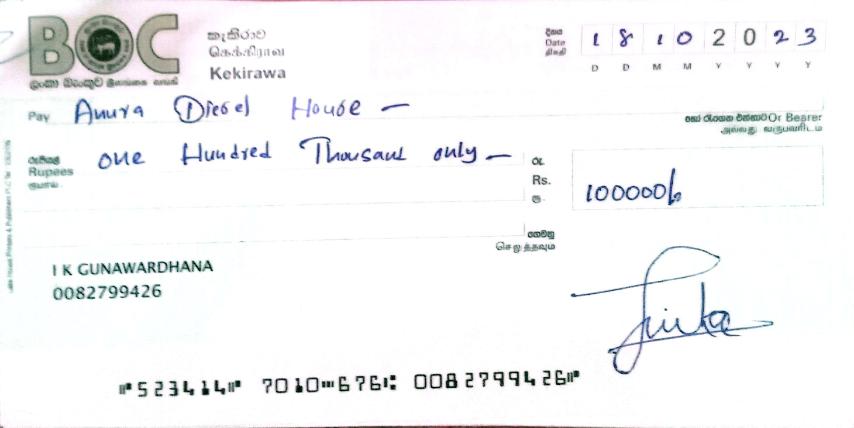 BOC
කැකිරාව
கெக்கிராவ
Kekirawa
ලංකා බැංකුව இலங்கை வங்கி
දිනය
Date 18102023
திகதி
D D M M Y Y Y Y
Pay Anura Diesel House —
හෝ රැගෙන එන්නාට Or Bearer
அல்லது வருபவரிடம்
රුපියල්
Rupees one Hundred Thousand only —
ரூபாய்
රු.
Rs. 100000/=
ரூ.
ගෙවනු
செலுத்தவும்
I K GUNAWARDHANA
0082799426
⑈523414⑈ 7010⑉676⑆ 0082799426⑈